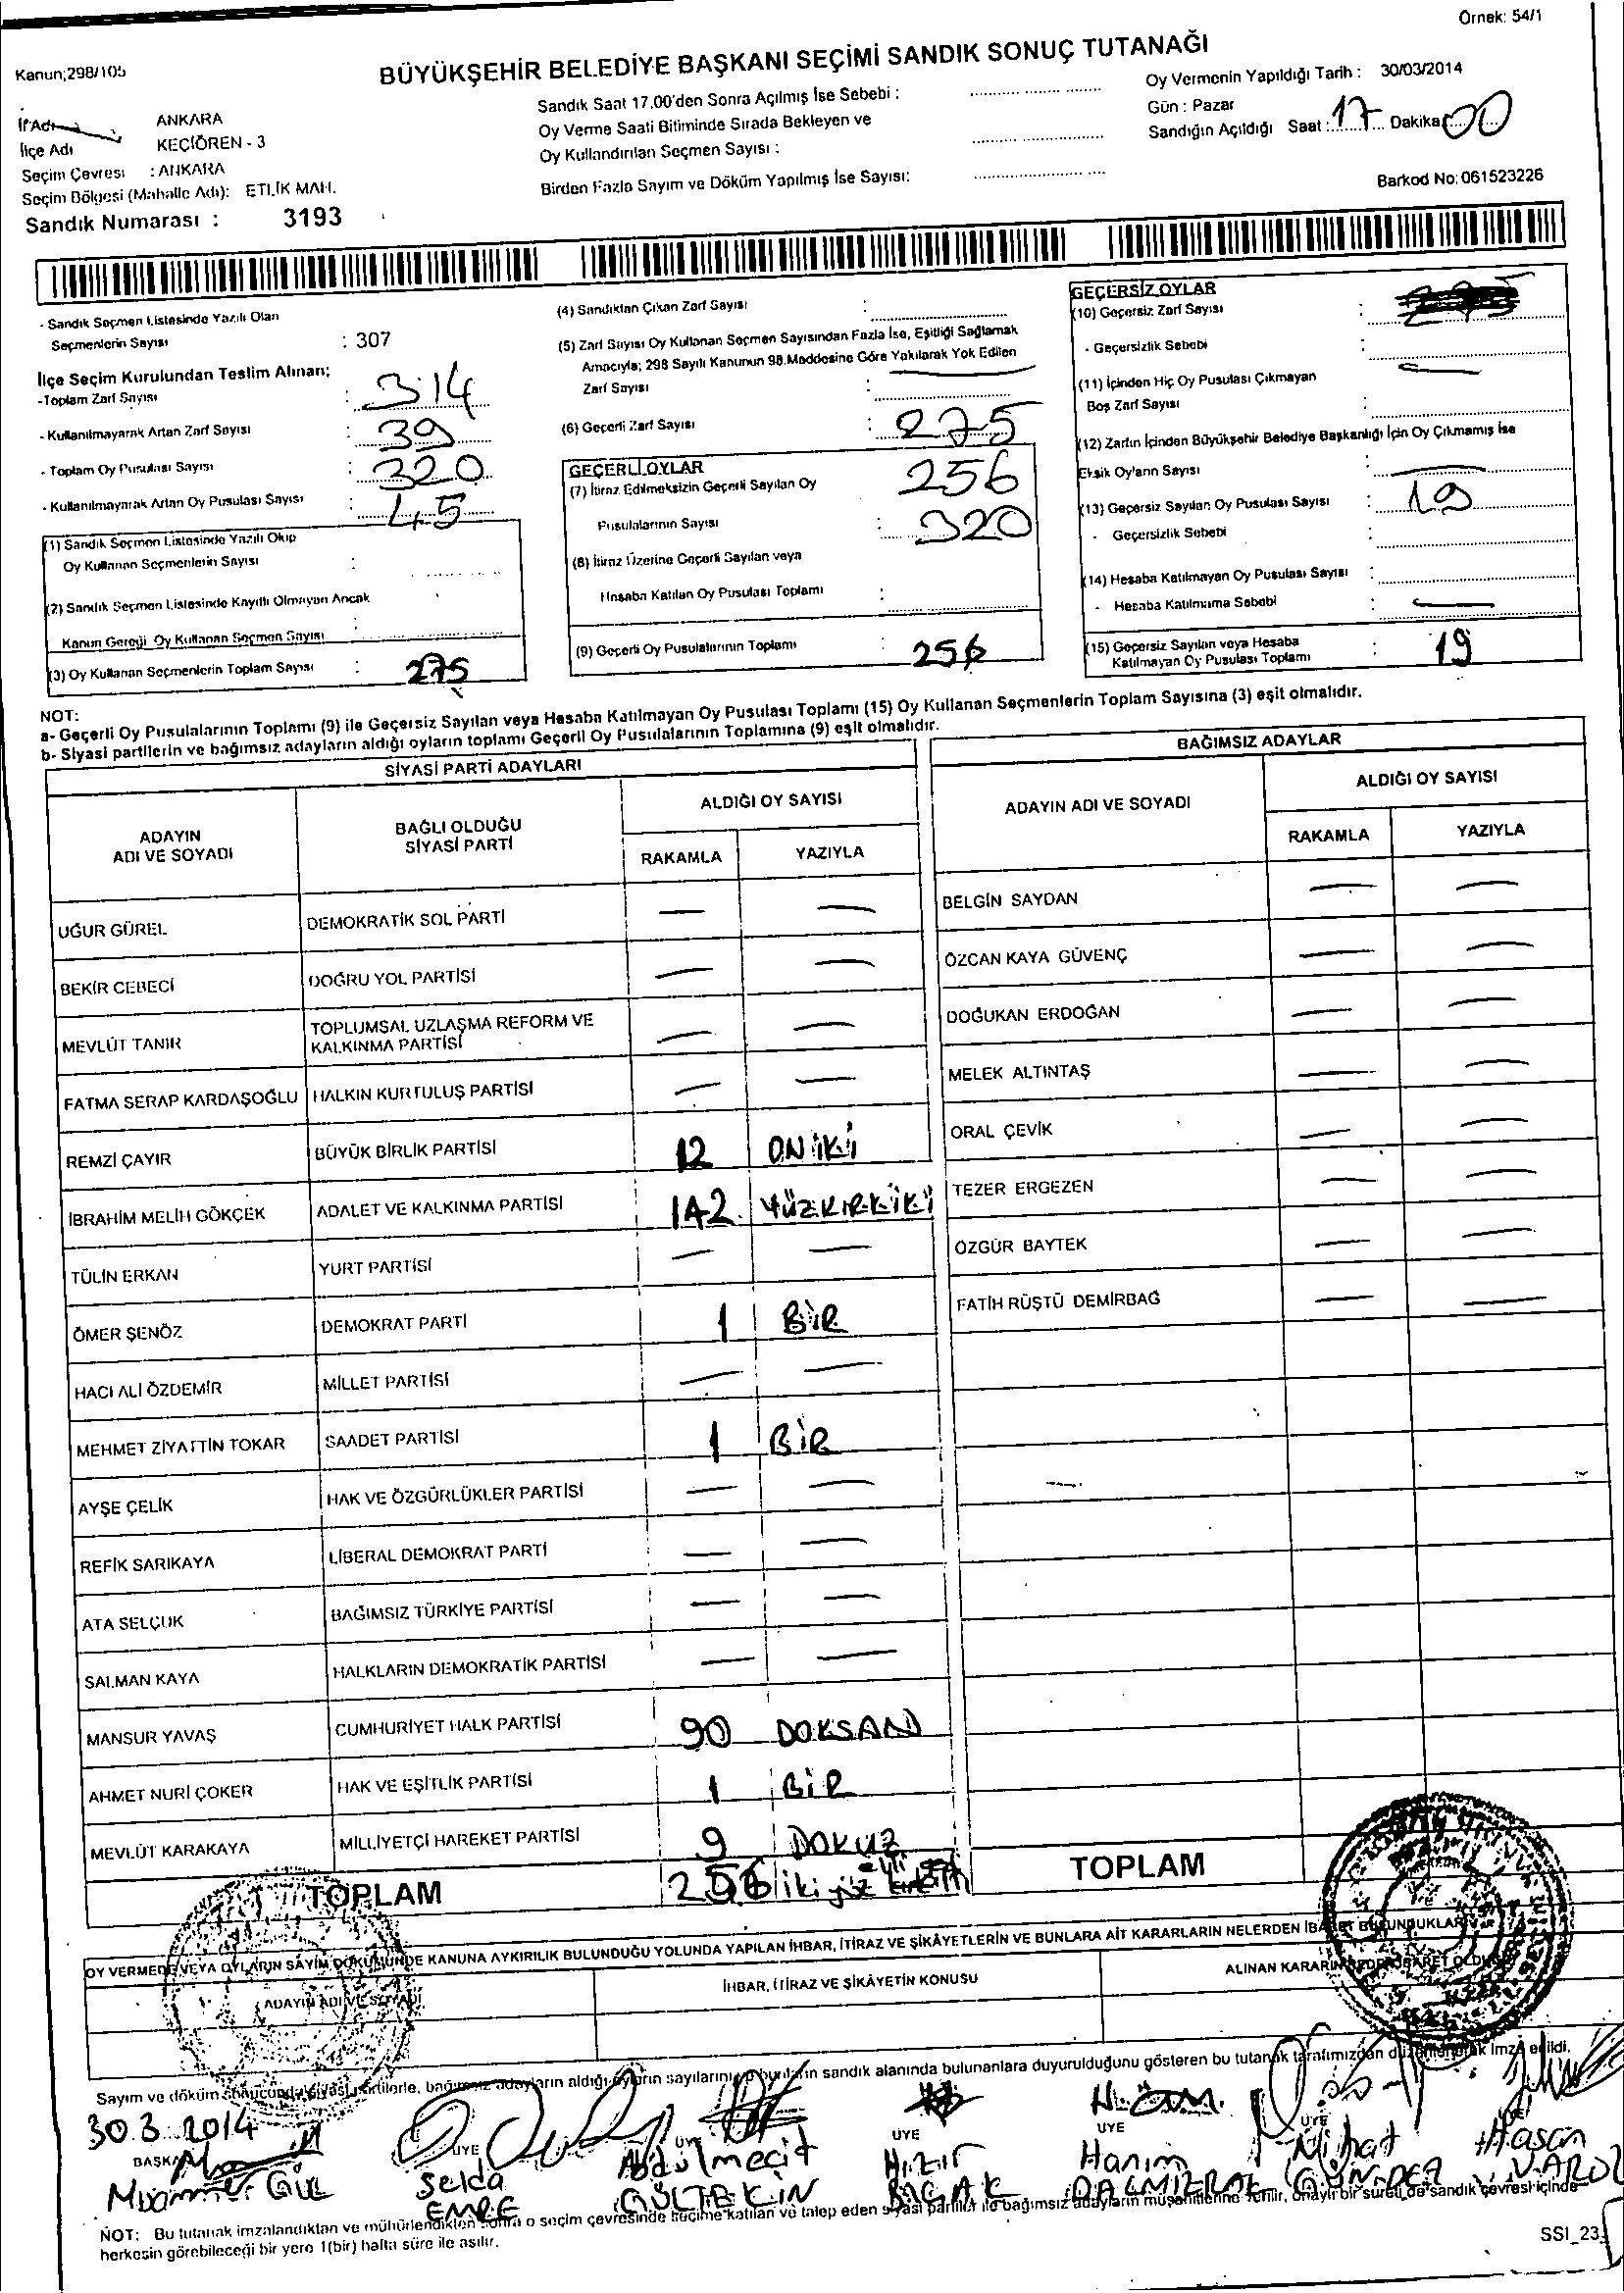 Örnek: 54/1
Kanun;298/105
BÜYÜKŞEHİR BELEDİYE BAŞKANI SEÇİMİ SANDIK SONUÇ TUTANAĞI
Oy Vermenin Yapıldığı Tarih : 30/03/2014
Sandık Saat 17.00'den Sonra Açılmış İse Sebebi :
Gün : Pazar
İl Adı ANKARA
Oy Verme Saati Bitiminde Sırada Bekleyen ve
Sandığın Açıldığı Saat : 17 Dakika 00
İlçe Adı KEÇİÖREN - 3
Oy Kullandırılan Seçmen Sayısı :
Seçim Çevresi : ANKARA
Birden Fazla Sayım ve Döküm Yapılmış İse Sayısı:
Barkod No: 061523226
Seçim Bölgesi (Mahalle Adı): ETLİK MAH.
Sandık Numarası : 3193
- Sandık Seçmen Listesinde Yazılı Olan
Seçmenlerin Sayısı : 307
İlçe Seçim Kurulundan Teslim Alınan;
-Toplam Zarf Sayısı : 314
- Kullanılmayarak Artan Zarf Sayısı : 39
- Toplam Oy Pusulası Sayısı : 320
- Kullanılmayarak Artan Oy Pusulası Sayısı : 45
(1) Sandık Seçmen Listesinde Yazılı Olup
Oy Kullanan Seçmenlerin Sayısı :
(2) Sandık Seçmen Listesinde Kayıtlı Olmayan Ancak
Kanun Gereği Oy Kullanan Seçmen Sayısı :
(3) Oy Kullanan Seçmenlerin Toplam Sayısı : 275
(4) Sandıktan Çıkan Zarf Sayısı :
(5) Zarf Sayısı Oy Kullanan Seçmen Sayısından Fazla İse, Eşitliği Sağlamak
Amacıyla; 298 Sayılı Kanunun 98.Maddesine Göre Yakılarak Yok Edilen
Zarf Sayısı : —
(6) Geçerli Zarf Sayısı : 275
GEÇERLİ OYLAR
(7) İtiraz Edilmeksizin Geçerli Sayılan Oy 256
Pusulalarının Sayısı : 320
(8) İtiraz Üzerine Geçerli Sayılan veya
Hesaba Katılan Oy Pusulası Toplamı :
(9) Geçerli Oy Pusulalarının Toplamı : 256
GEÇERSİZ OYLAR
(10) Geçersiz Zarf Sayısı :
- Geçersizlik Sebebi :
(11) İçinden Hiç Oy Pusulası Çıkmayan —
Boş Zarf Sayısı :
(12) Zarfın İçinden Büyükşehir Belediye Başkanlığı İçin Oy Çıkmamış İse
Eksik Oyların Sayısı : —
(13) Geçersiz Sayılan Oy Pusulası Sayısı : 19
- Geçersizlik Sebebi :
(14) Hesaba Katılmayan Oy Pusulası Sayısı :
- Hesaba Katılmama Sebebi : —
(15) Geçersiz Sayılan veya Hesaba
Katılmayan Oy Pusulası Toplamı : 19
NOT:
a- Geçerli Oy Pusulalarının Toplamı (9) ile Geçersiz Sayılan veya Hesaba Katılmayan Oy Pusulası Toplamı (15) Oy Kullanan Seçmenlerin Toplam Sayısına (3) eşit olmalıdır.
b- Siyasi partilerin ve bağımsız adayların aldığı oyların toplamı Geçerli Oy Pusulalarının Toplamına (9) eşit olmalıdır.
SİYASİ PARTİ ADAYLARI
ADAYIN ADI VE SOYADI
BAĞLI OLDUĞU SİYASİ PARTİ
ALDIĞI OY SAYISI
RAKAMLA YAZIYLA
UĞUR GÜREL DEMOKRATİK SOL PARTİ — —
BEKİR CEBECİ DOĞRU YOL PARTİSİ — —
MEVLÜT TANIR TOPLUMSAL UZLAŞMA REFORM VE KALKINMA PARTİSİ — —
FATMA SERAP KARDAŞOĞLU HALKIN KURTULUŞ PARTİSİ — —
REMZİ ÇAYIR BÜYÜK BİRLİK PARTİSİ 12 ONİKİ
İBRAHİM MELİH GÖKÇEK ADALET VE KALKINMA PARTİSİ 142 YÜZKIRKİKİ
TÜLİN ERKAN YURT PARTİSİ — —
ÖMER ŞENÖZ DEMOKRAT PARTİ 1 BİR
HACI ALİ ÖZDEMİR MİLLET PARTİSİ — —
MEHMET ZİYATTİN TOKAR SAADET PARTİSİ 1 BİR
AYŞE ÇELİK HAK VE ÖZGÜRLÜKLER PARTİSİ — —
REFİK SARIKAYA LİBERAL DEMOKRAT PARTİ — —
ATA SELÇUK BAĞIMSIZ TÜRKİYE PARTİSİ — —
SALMAN KAYA HALKLARIN DEMOKRATİK PARTİSİ — —
MANSUR YAVAŞ CUMHURİYET HALK PARTİSİ 90 DOKSAN
AHMET NURİ ÇOKER HAK VE EŞİTLİK PARTİSİ 1 BİR
MEVLÜT KARAKAYA MİLLİYETÇİ HAREKET PARTİSİ 9 DOKUZ
TOPLAM 256 iki yüz elli
BAĞIMSIZ ADAYLAR
ADAYIN ADI VE SOYADI
ALDIĞI OY SAYISI
RAKAMLA YAZIYLA
BELGİN SAYDAN — —
ÖZCAN KAYA GÜVENÇ — —
DOĞUKAN ERDOĞAN — —
MELEK ALTINTAŞ — —
ORAL ÇEVİK — —
TEZER ERGEZEN — —
ÖZGÜR BAYTEK — —
FATİH RÜŞTÜ DEMİRBAĞ — —
TOPLAM
OY VERMEDE VEYA OYLARIN SAYIM DÖKÜMÜNDE KANUNA AYKIRILIK BULUNDUĞU YOLUNDA YAPILAN İHBAR, İTİRAZ VE ŞİKÂYETLERİN VE BUNLARA AİT KARARLARIN NELERDEN İBARET BULUNDUKLARI
ADAYIN ADI VE SOYADI
İHBAR, İTİRAZ VE ŞİKÂYETİN KONUSU
ALINAN KARARIN NEDEN İBARET OLDUĞU
Sayım ve döküm sonucunda siyasi partilerle, bağımsız adayların aldığı oyların sayılarını ve bunların sandık alanında bulunanlara duyurulduğunu gösteren bu tutanak tarafımızdan düzenlenerek imza edildi.
30.3.2014
BAŞKAN ÜYE ÜYE ÜYE ÜYE ÜYE ÜYE
Muammer GÜL
Selda EMRE
Abdülmecit GÜLTEKİN
Hızır
Hanım
Nihat
Hasan VAROL
NOT: Bu tutanak imzalandıktan ve mühürlendikten sonra o seçim çevresinde seçime katılan ve talep eden siyasi partiler ile bağımsız adayların müşahitlerine verilir, onaylı bir sureti de sandık çevresi içinde
herkesin görebileceği bir yere 1(bir) hafta süre ile asılır.
SSI_23